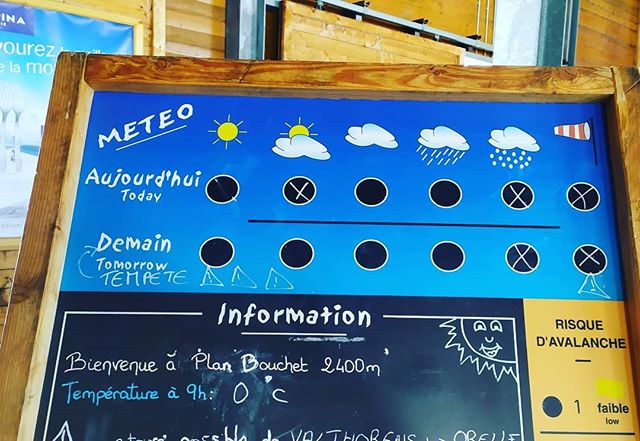 PINA
vourez
e la mo
METEO
Aujourd'hui
Today
Demain
Tomorrow
TEMPETE
Information
RISQUE
D'AVALANCHE
Bienvenue à Plan Bouchet 2400m
Température à 9h: 0°C
1 faible
low
possible de VALTHORENS
ORELLE